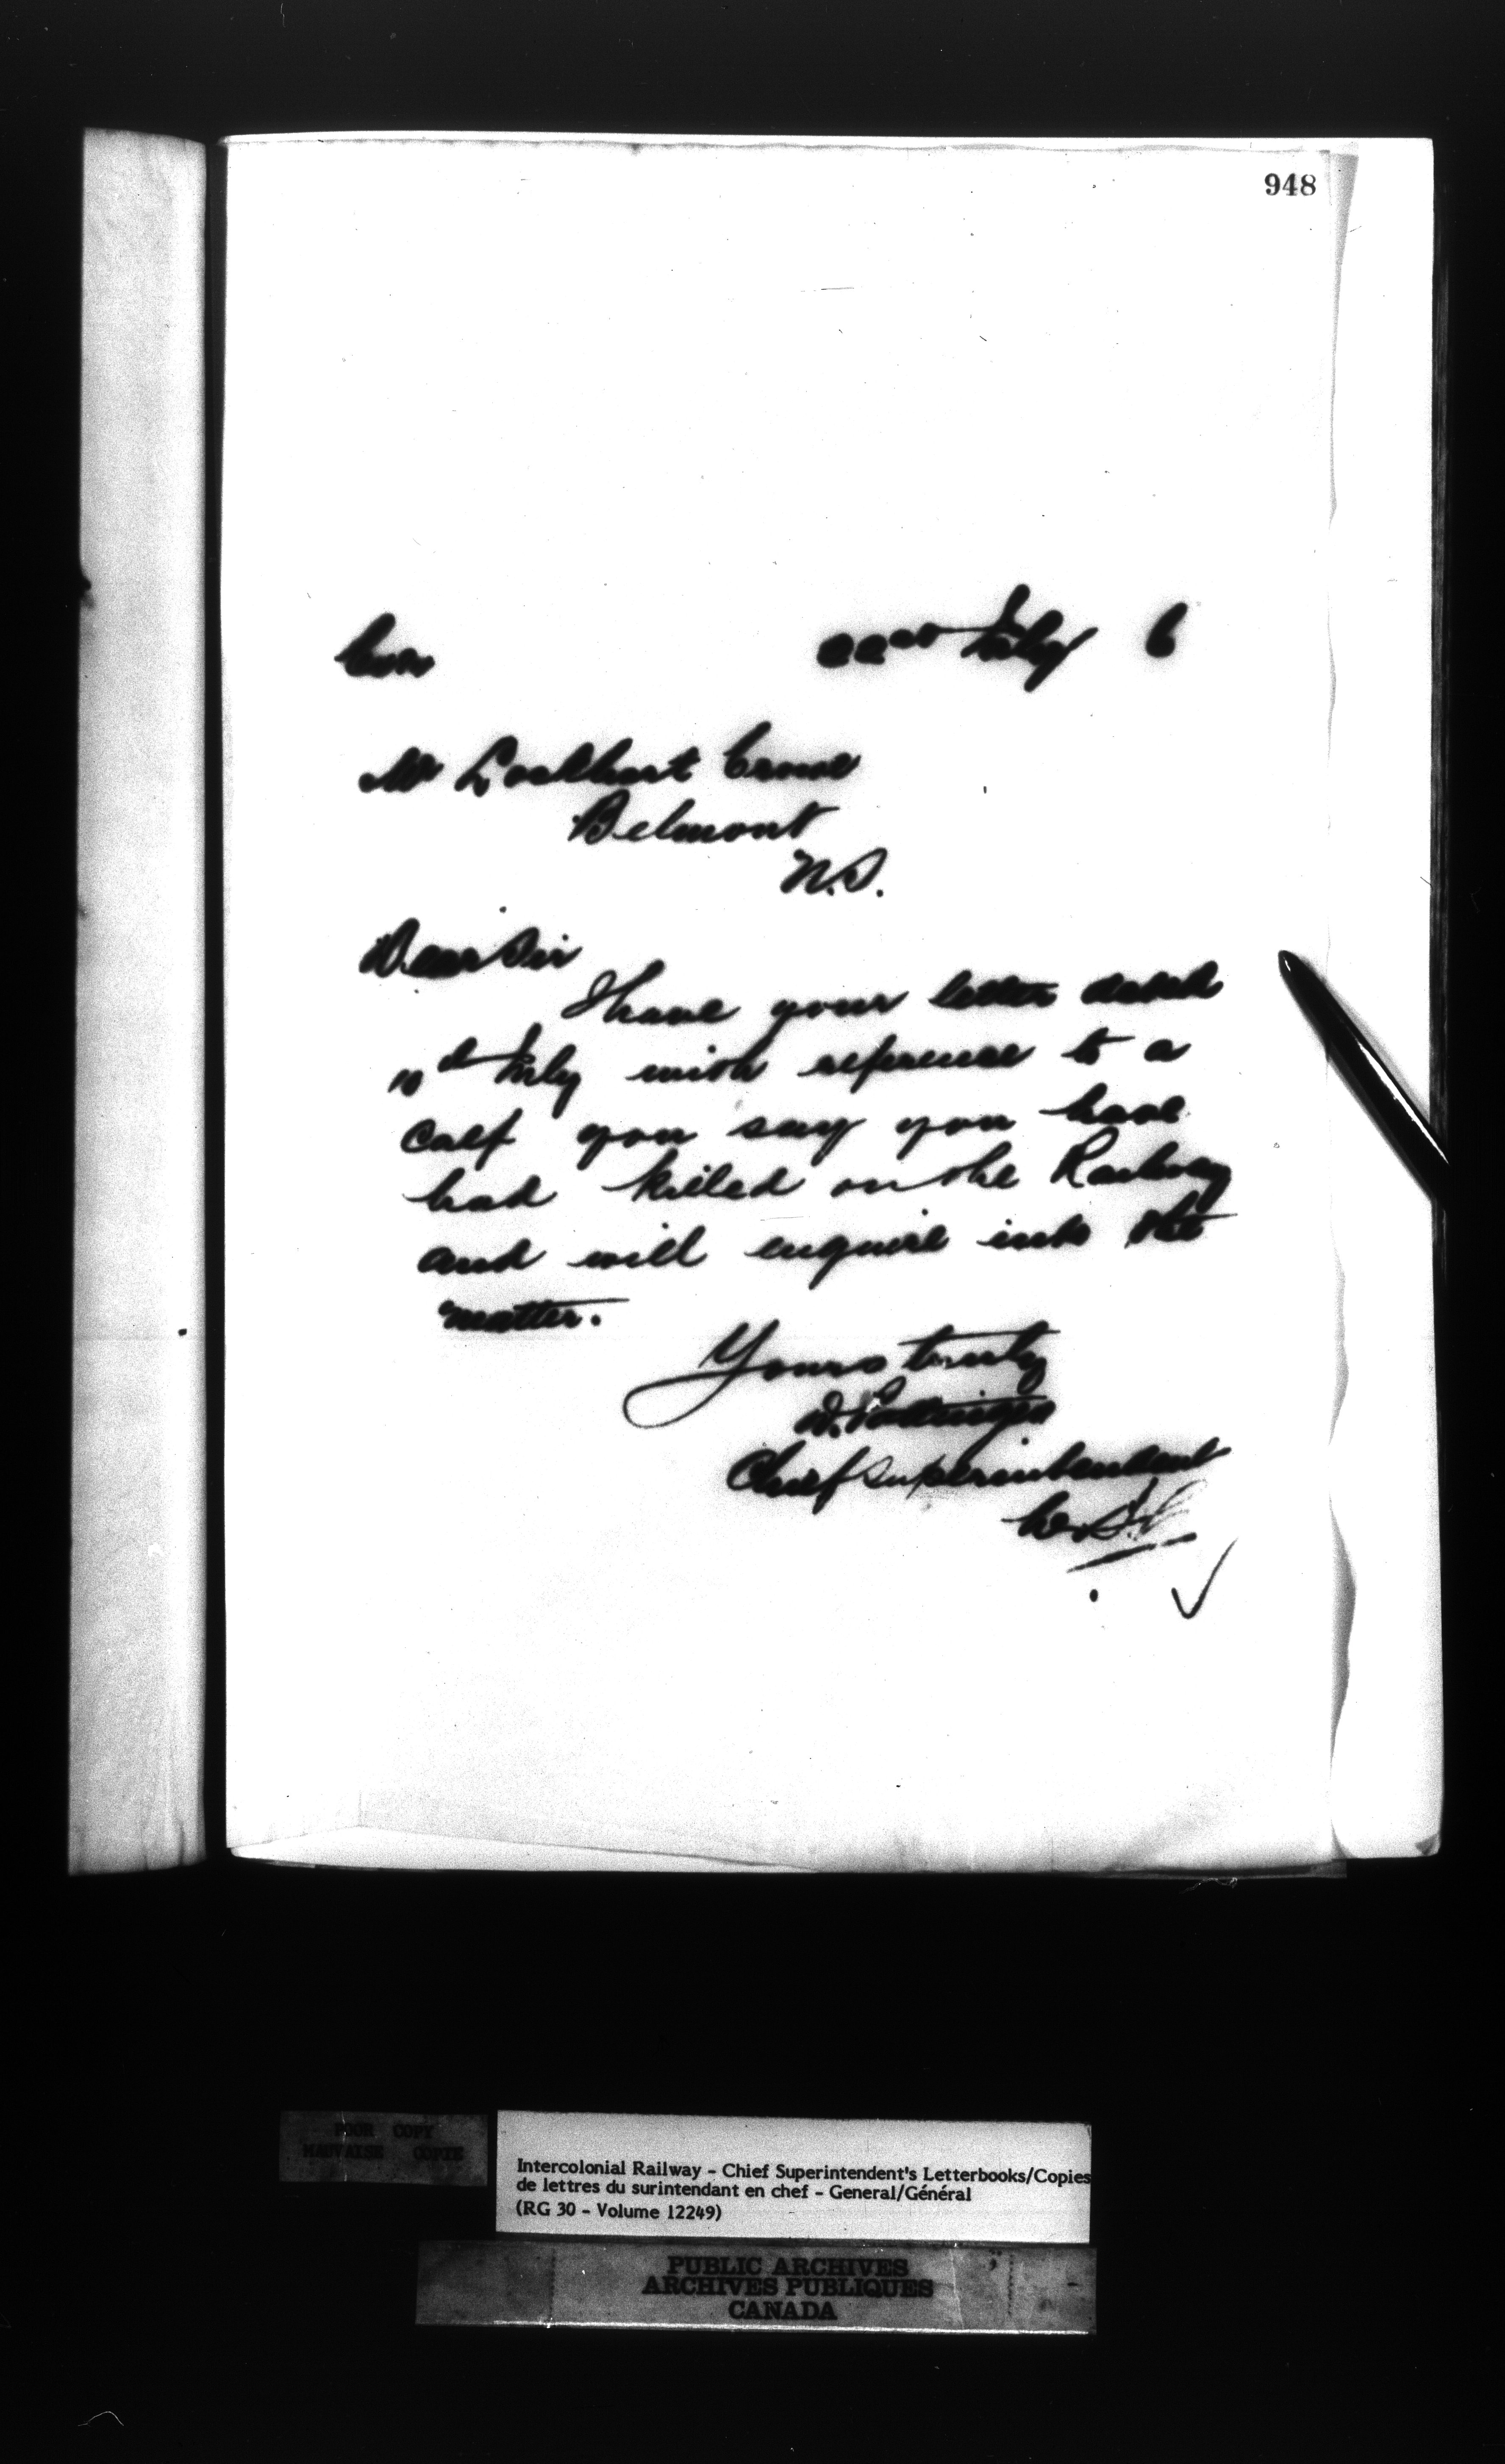 948
22nd July 6
Mr Lockhart Crowe
Belmont
N.S.
Dear Sir
I have your letter dated
July with reference to a
calf you say you have
had killed on the Railway
and will enquire into the
matter.
Yours truly
D. Pottinger
Chief Superintendent
POOR COPY
MAUVAISE COPIE
Intercolonial Railway - Chief Superintendent's Letterbooks/Copies
de lettres du surintendant en chef - General/Général
(RG 30 - Volume 12249)
PUBLIC ARCHIVES
ARCHIVES PUBLIQUES
CANADA